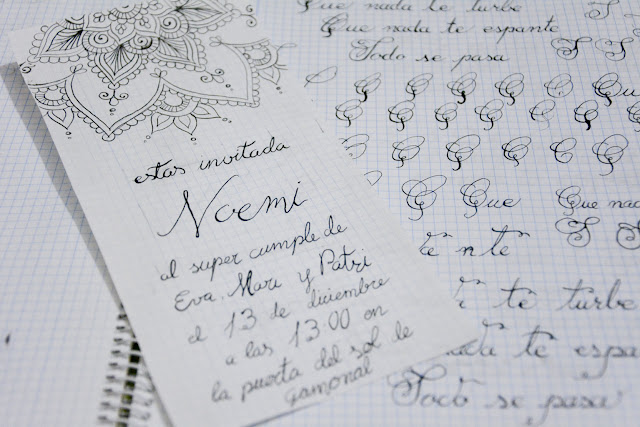 estas invitada
Noemi
al super cumple de
Eva, Mari y Patri
el 13 de diciembre
a las 13:00 en
la puerta del sol de
gamonal
Que nada te turbe
Que nada te espante
Todo se pasa
Que
Que Que nad
te turbe
nada te espa
Todo se pasa